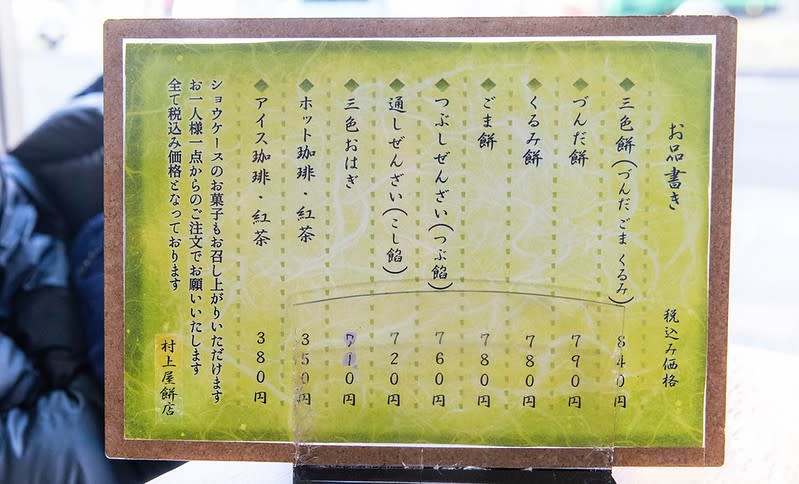 お品書き 税込み価格
◆三色餅(づんだ ごま くるみ) 840円
◆づんだ餅 790円
◆くるみ餅 780円
◆ごま餅 780円
◆つぶしぜんざい(つぶ餡) 760円
◆通しぜんざい(こし餡) 720円
◆三色おはぎ 710円
◆ホット珈琲・紅茶 350円
◆アイス珈琲・紅茶 380円
ショウケースのお菓子もお召し上がりいただけます
お一人様一点からのご注文でお願いいたします
全て税込み価格となっております
村上屋餅店